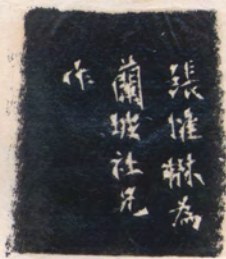 張惟楙為
蘭墩社兄
作